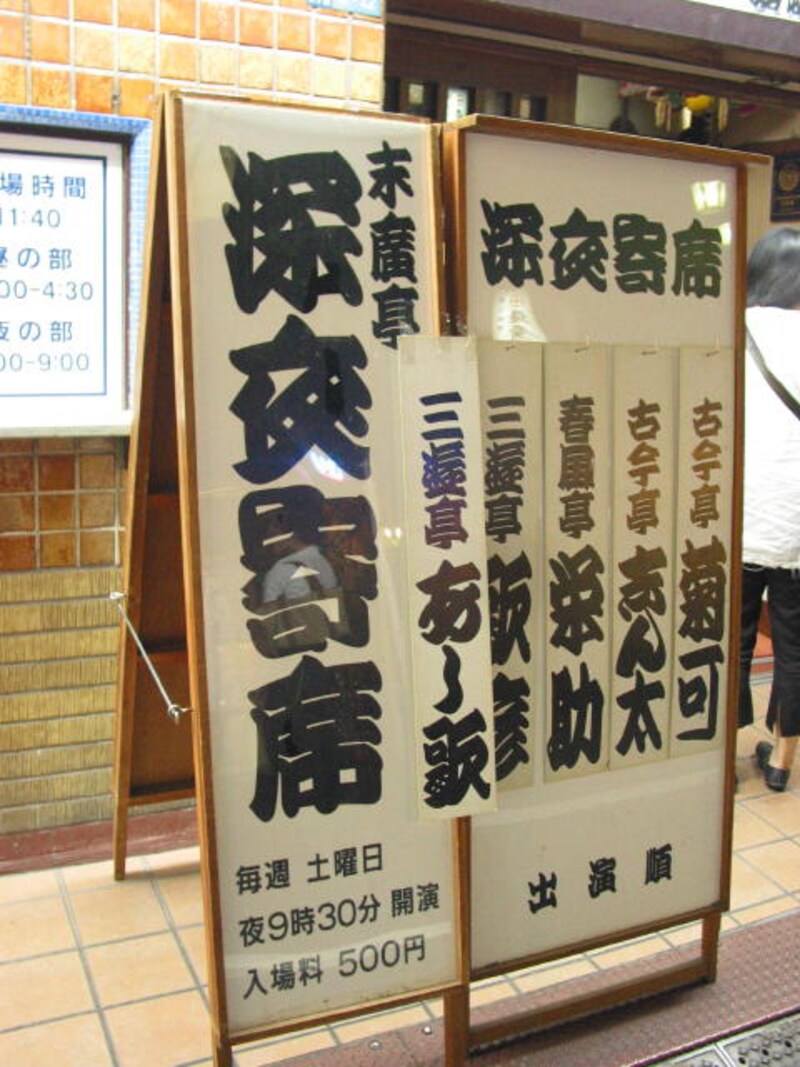 場時間
11:40
昼の部
00-4:30
夜の部
00-9:00
末廣亭
深夜寄席
毎週 土曜日
夜9時30分 開演
入場料 500円
深夜寄席
古今亭 菊可
古今亭 志ん太
春風亭 栄助
三遊亭
三遊亭 あし歌
出演順